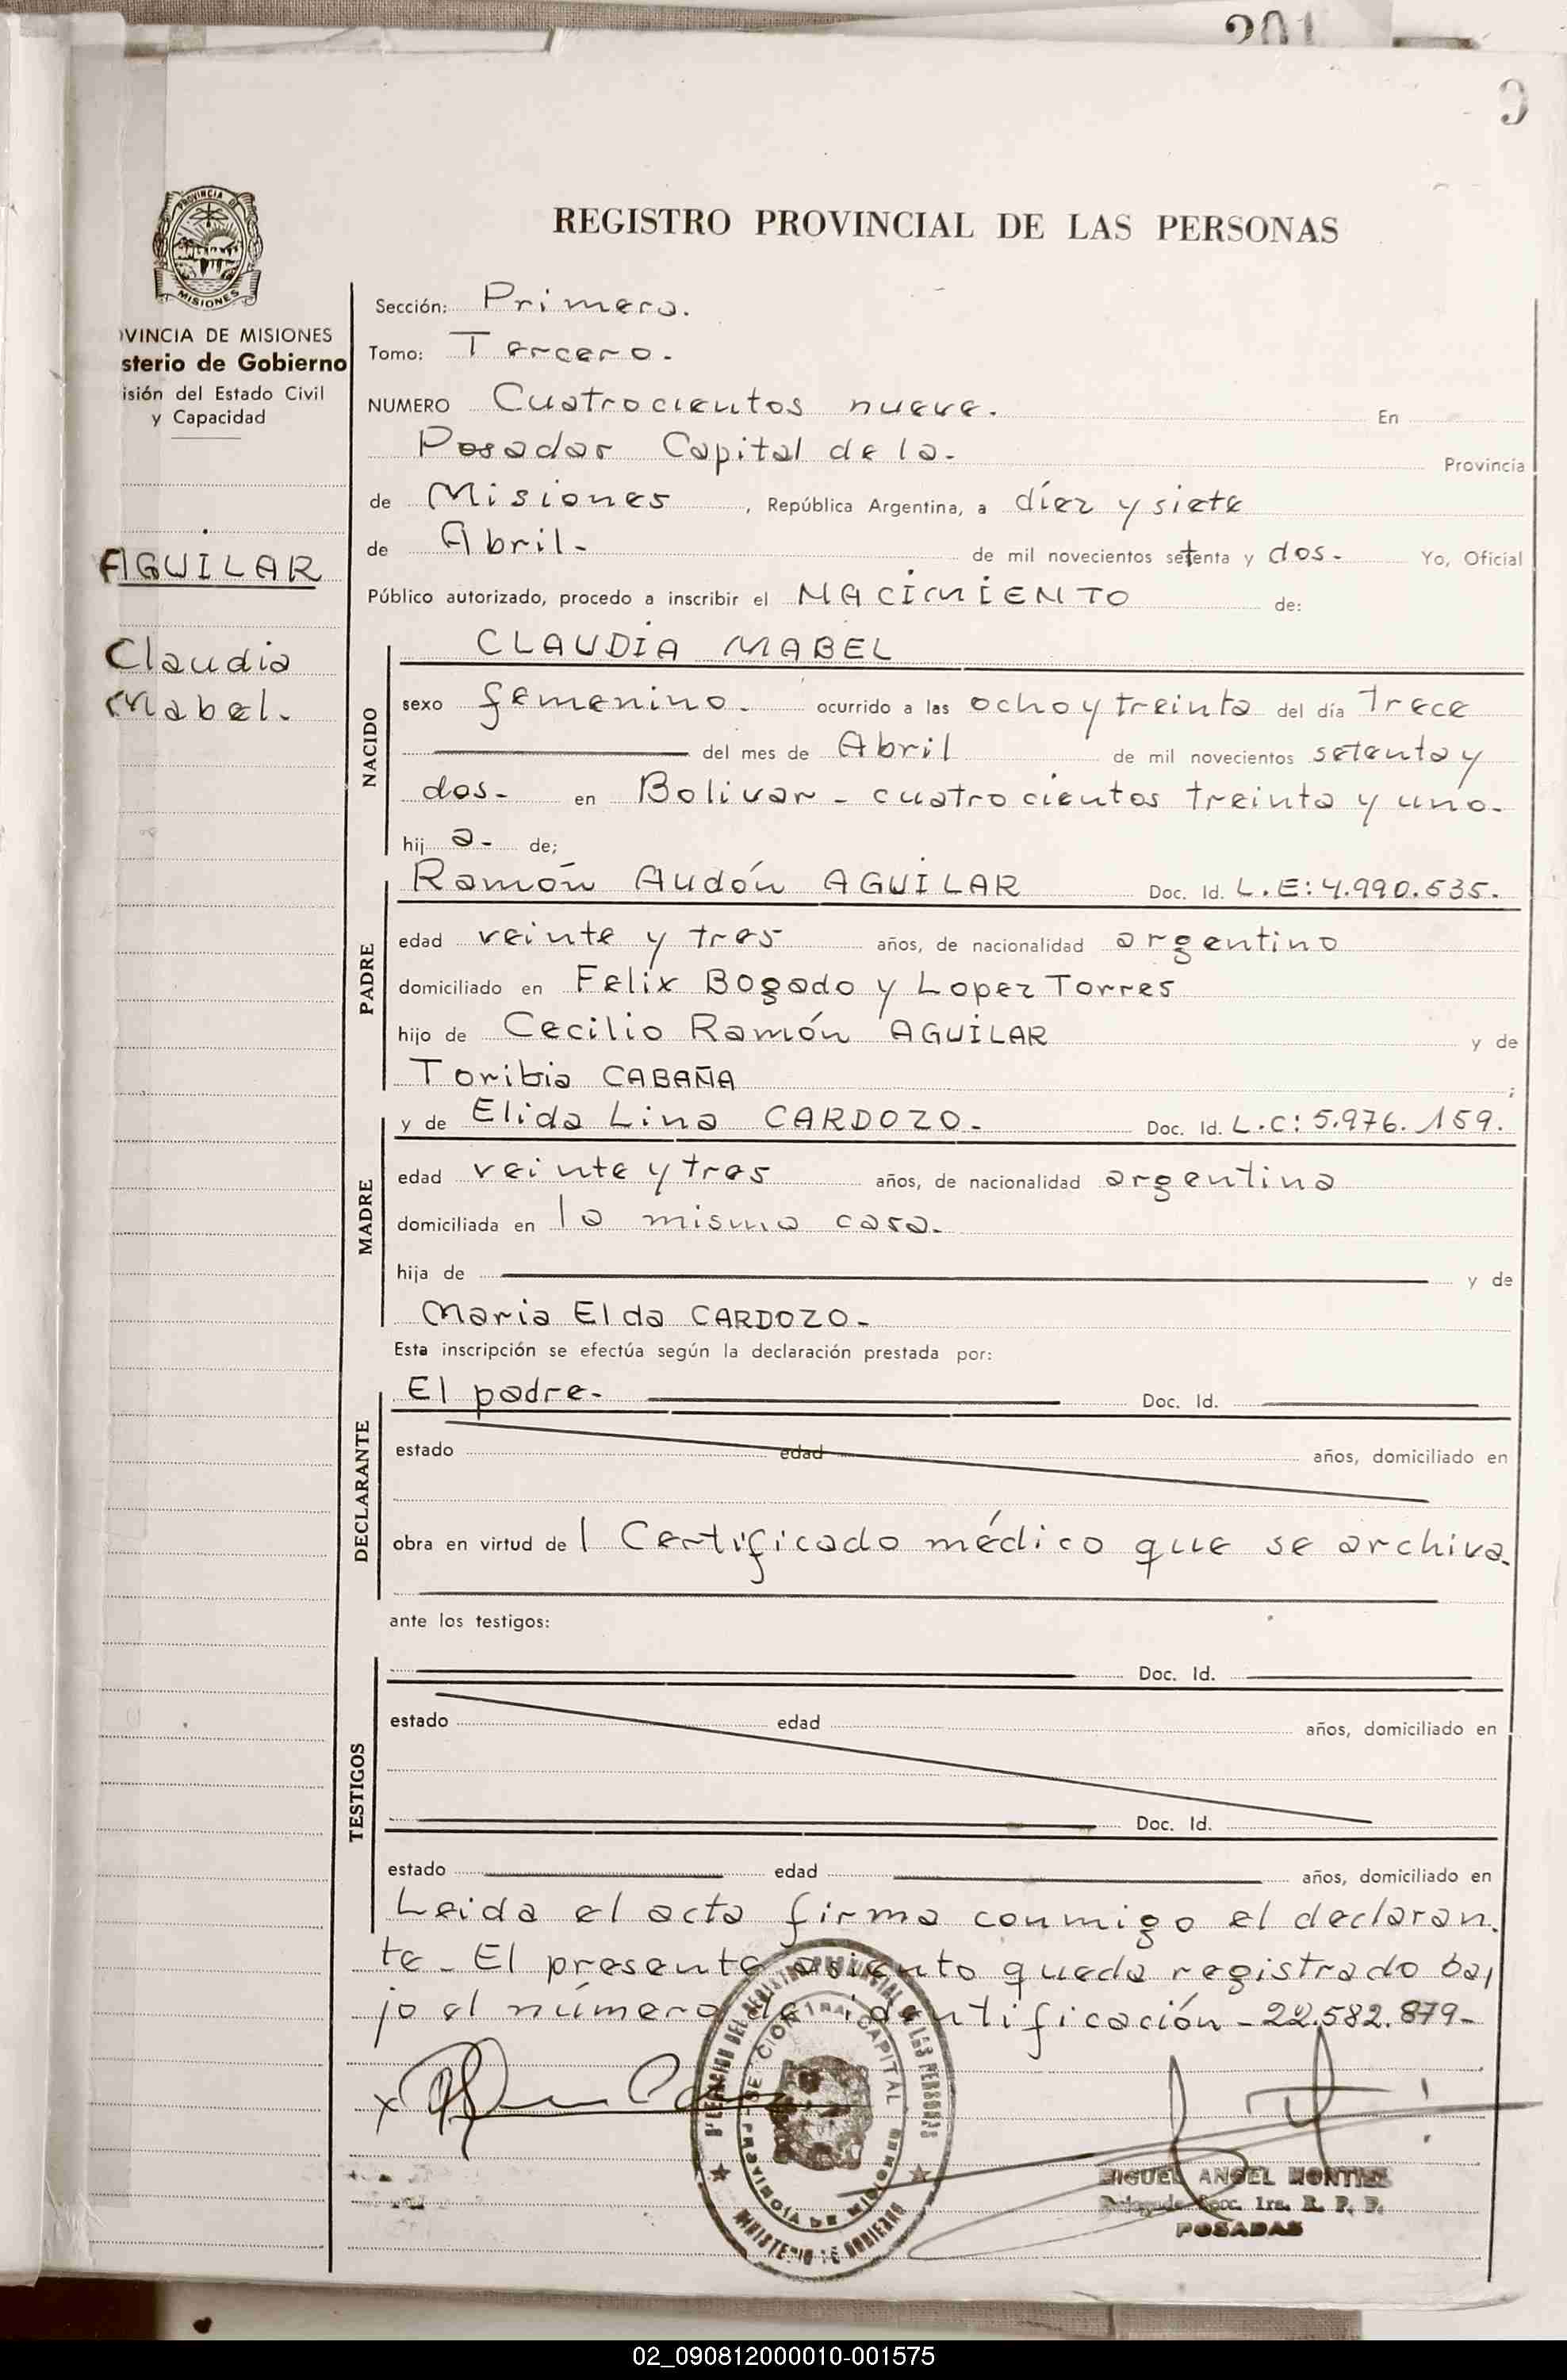 201
9
PROVINCIA DE
MISIONES
REGISTRO PROVINCIAL DE LAS PERSONAS
VINCIA DE MISIONES
sterio de Gobierno
isión del Estado Civil
y Capacidad
AGUILAR
Claudia
Mabel.
Sección: Primera.
Tomo: Tercero.
NUMERO Cuatrocientos nueve. En
Posadas Capital de la- Provincia
de Misiones, República Argentina, a díez y siete
de Abril- de mil novecientos setenta y dos- Yo, Oficial
Público autorizado, procedo a inscribir el NACIMIENTO de:
NACIDO
CLAUDIA MABEL
sexo femenino. ocurrido a las ocho y treinta del día Trece
del mes de Abril de mil novecientos setenta y
dos- en Bolivar - cuatrocientos treinta y uno-
hij a- de;
PADRE
Ramón Audón AGUILAR Doc. Id. L.E: 4.990.535.
edad veinte y tres años, de nacionalidad argentino
domiciliado en Felix Bogado y Lopez Torres
hijo de Cecilio Ramón AGUILAR y de
Toribia CABAÑA ;
MADRE
y de Elida Lina CARDOZO- Doc. Id. L.C: 5.976.159.
edad veinte y tres años, de nacionalidad argentina
domiciliada en la misma casa.
hija de y de
Maria Elda CARDOZO-
Esta inscripción se efectúa según la declaración prestada por:
DECLARANTE
El padre- Doc. Id.
estado edad años, domiciliado en
obra en virtud de 1 Certificado médico que se archiva.
ante los testigos:
TESTIGOS
Doc. Id.
estado edad años, domiciliado en
Doc. Id.
estado edad años, domiciliado en
Leida el acta firma conmigo el declaran.
te- El presente asiento queda registrado ba,
jo el número de identificación - 22.582.879-
x
DEL REGISTRO PROVINCIAL DE LAS PERSONAS
SECCION 1RA. CAPITAL
PROVINCIA DE MISIONES
MINISTERIO DE GOBIERNO
MIGUEL ANGEL
Delegado Secc. 1ra. R. P. P.
POSADAS
02_090812000010-001575